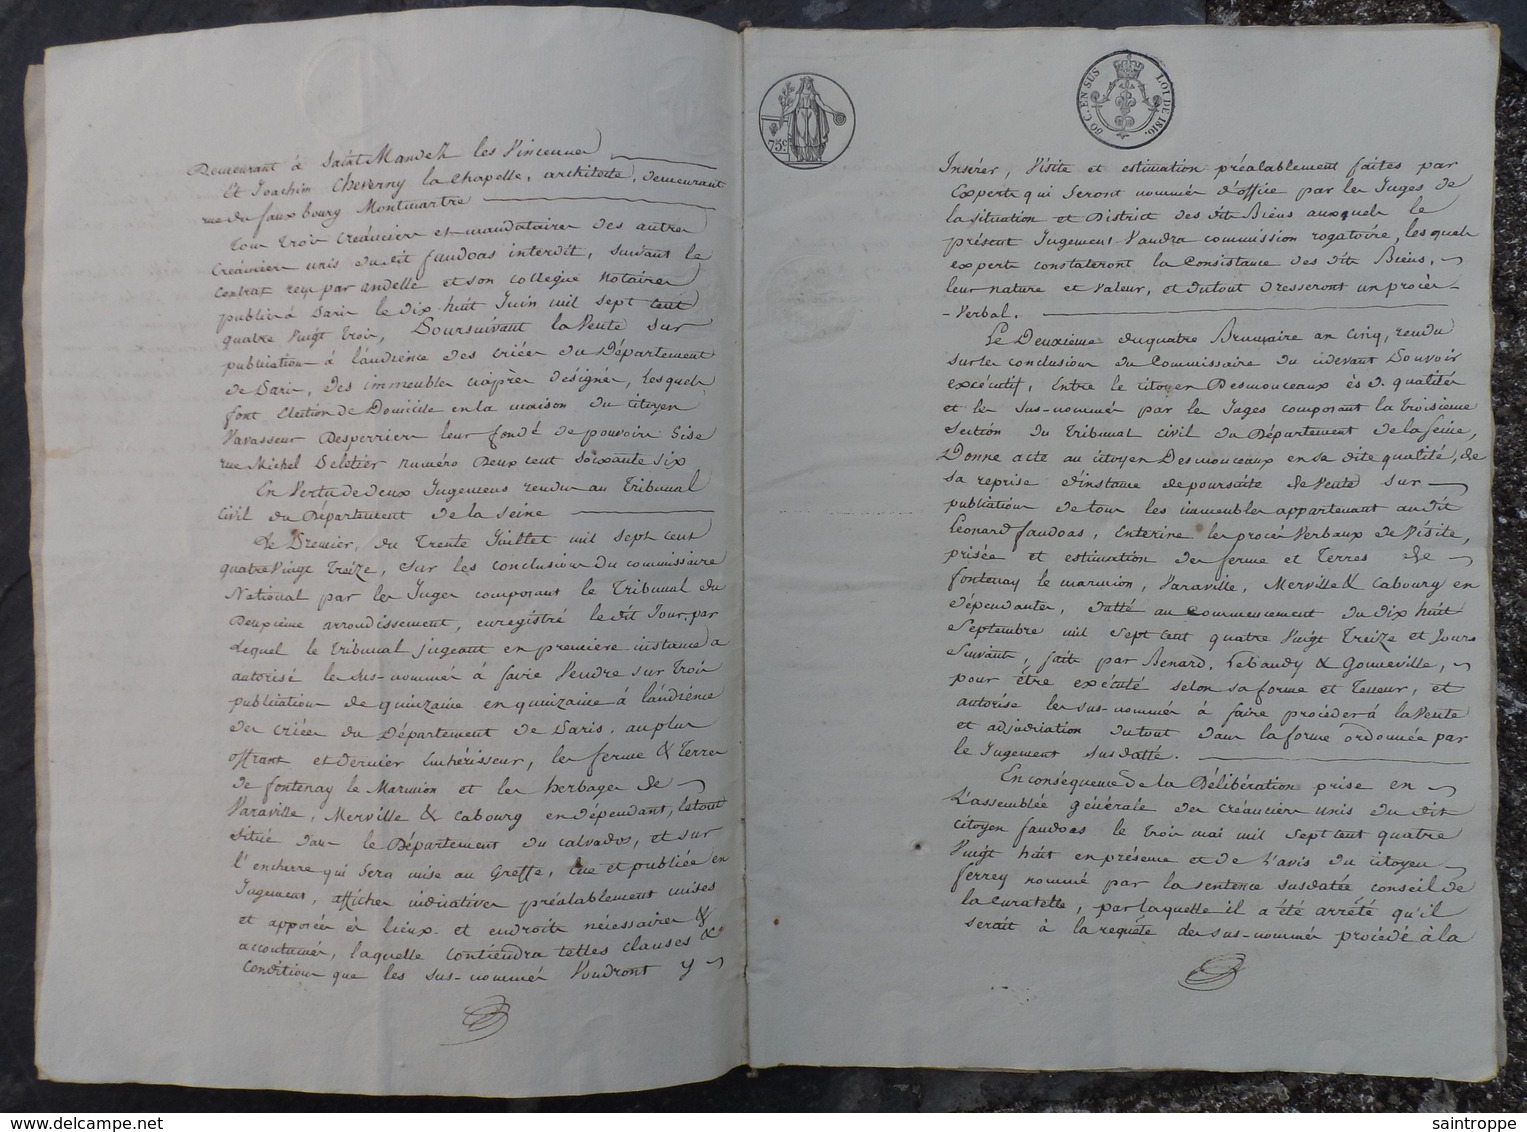 Demeurant à Saint Mandez les Vincennes
Et Joachim Cheverny la Chapelle, architecte, demeurant
rue du fauxbourg Montmartre
Tous trois créanciers et mandataires des autres
créanciers unis du dit faudoas interdit, suivant le
contrat reçu par andelle et son collègue Notaires
publics à Paris le dix huit Juin mil sept cent
quatre Vingt trois, Poursuivant la Vente sur
publication à l'audience des criées du Département
de Paris, des immeubles ciaprès désignés, lesquels
font Election de Domicile en la maison du citoyen
Vavasseur Desperriers leur fondé de pouvoirs Sise
rue Michel Peletier numéro Deux cent Soixante six
En Vertu de deux Jugemens rendus au Tribunal
civil du Département de la Seine
Le Premier, du Trente Juillet mil sept cent
quatre Vingt Treize, sur les conclusions du commissaire
National par les Juges composant le Tribunal du
Deuxième arrondissement, enregistré le dit Jour, par
Lequel le tribunal jugeant en première instance a
autorisé les sus-nommés à faire Vendre sur trois
publications de quinzaine en quinzaine à l'audience
des criées du Département de Paris, au plus
offrant et dernier Enchérisseur, les ferme & Terres
de fontenay le Marmion et les herbages de
Varaville, Merville & Cabourg en dépendant, le tout
situé dans le Département du calvados, et sur
l'enchère qui sera mise au Greffe, Lue et publiée en
Jugement, affiches indicatives préalablement mises
et apposées ès lieux et endroits nécessaires &
accoutumés, laquelle contiendra telles clauses &
Conditions que les sus-nommés Voudront y
75c
50 C. EN SUS
LOI DE 1816.
Insérer, Visite et estimation préalablement faites par
Experts qui seront nommés d'office par les Juges de
la situation et District des dits Biens auxquels le
présent Jugement Vaudra commission rogatoire, lesquels
experts constateront la Consistance des dits Biens,
leur nature et Valeur, et du tout dresseront un procès
-Verbal.
Le Deuxième du quatre Brumaire an cinq, rendu
sur les conclusions du Commissaire du cidevant Pouvoir
exécutif, Entre le citoyen Desmouceaux ès d. qualités
et les sus-nommés par les Juges composant la troisieme
Section du Tribunal Civil du Département de la Seine,
Donne acte au citoyen Desmouceaux en sa dite qualité, de
sa reprise d'instance de poursuite de Vente sur
publication de tous les immeubles appartenant au dit
Léonard faudoas, Enterine les procès Verbaux de Visite,
prisée et estimation des ferme et Terres de
fontenay le marmion, Varaville, Merville & Cabourg en
dépendantes, datté au Commencement du dix huit
Septembre mil sept cent quatre Vingt Treize et Jours
Suivants, faits par Benard, Lebaudy & Gonneville,
pour être exécuté selon sa forme et teneur, et
autorise les sus-nommés à faire procéder à la Vente
et adjudication du tout dans la forme ordonnée par
le Jugement susdatté.
En conséquence de la Délibération prise en
L'assemblée générale des créanciers unis du dit
citoyen faudoas le trois mai mil sept cent quatre
Vingt huit en présence et de L'avis du citoyen
ferrey nommé par la sentence susdatée conseil de
la Curatelle, par laquelle il a été arrêté qu'il
serait à la requête des sus-nommés procédé à la
saintroppe